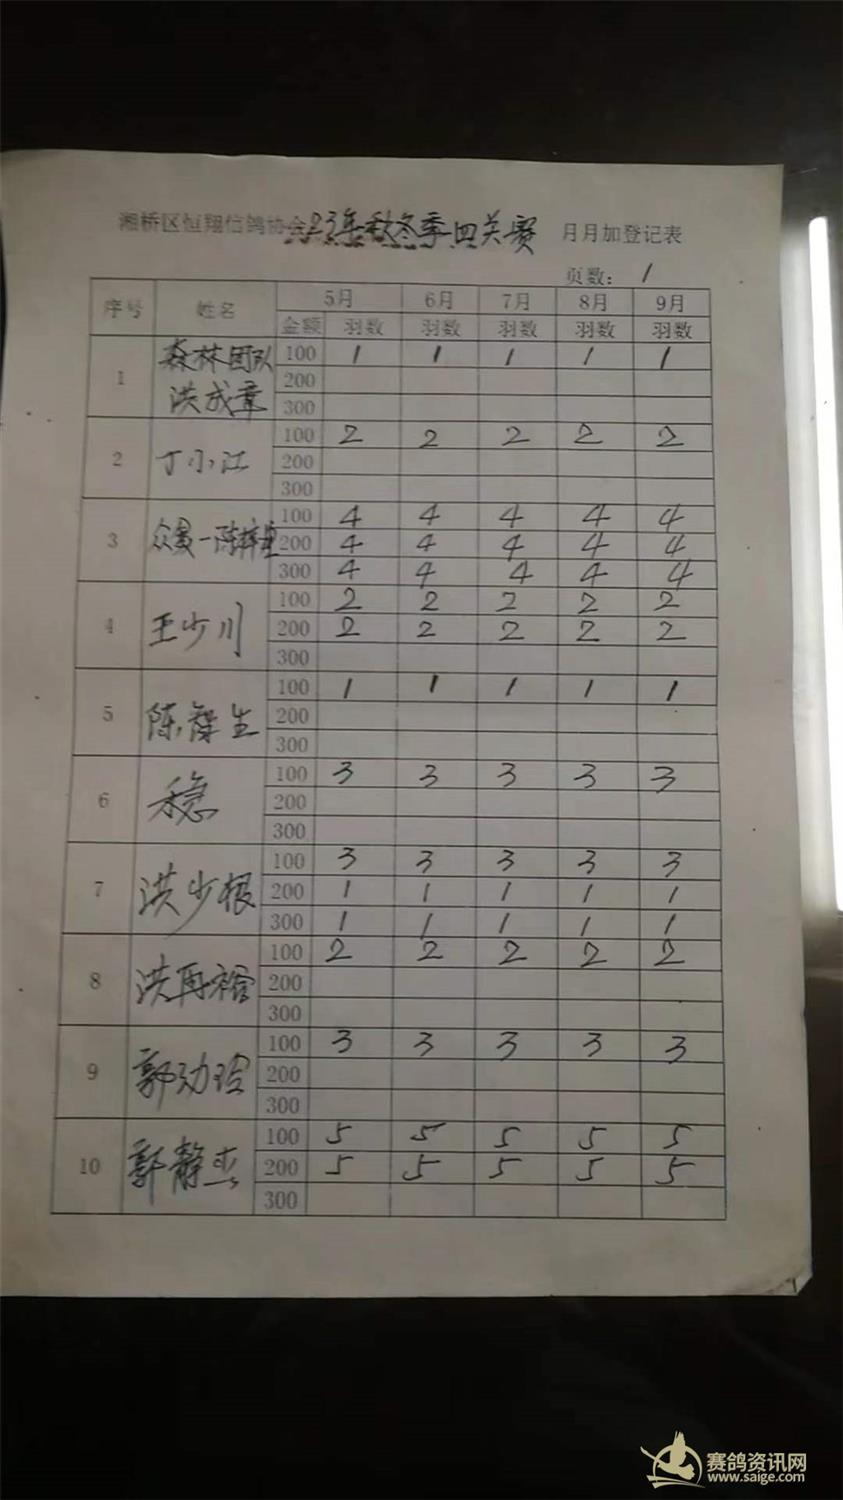 湘桥区恒翔信鸽协会23年秋冬季四关赛 月月加登记表
页数: 1
序号 姓名 5月 6月 7月 8月 9月
金额 羽数 羽数 羽数 羽数 羽数
1 森林团队 100 1 1 1 1 1
200
洪成章 300
2 丁小江 100 2 2 2 2 2
200
300
3 100 4 4 4 4 4
众赢一陈 200 4 4 4 4 4
300 4 4 4 4 4
4 王少川 100 2 2 2 2 2
200 2 2 2 2 2
300
5 陈 生 100 1 1 1 1 1
200
300
6 稳 100 3 3 3 3 3
200
300
7 洪少根 100 3 3 3 3 3
200 1 1 1 1 1
300 1 1 1 1 1
8 洪再裕 100 2 2 2 2 2
200
300
9 郭劲玲 100 3 3 3 3 3
200
300
10 郭静 100 5 5 5 5 5
200 5 5 5 5 5
300
赛鸽资讯网
www.saige.com